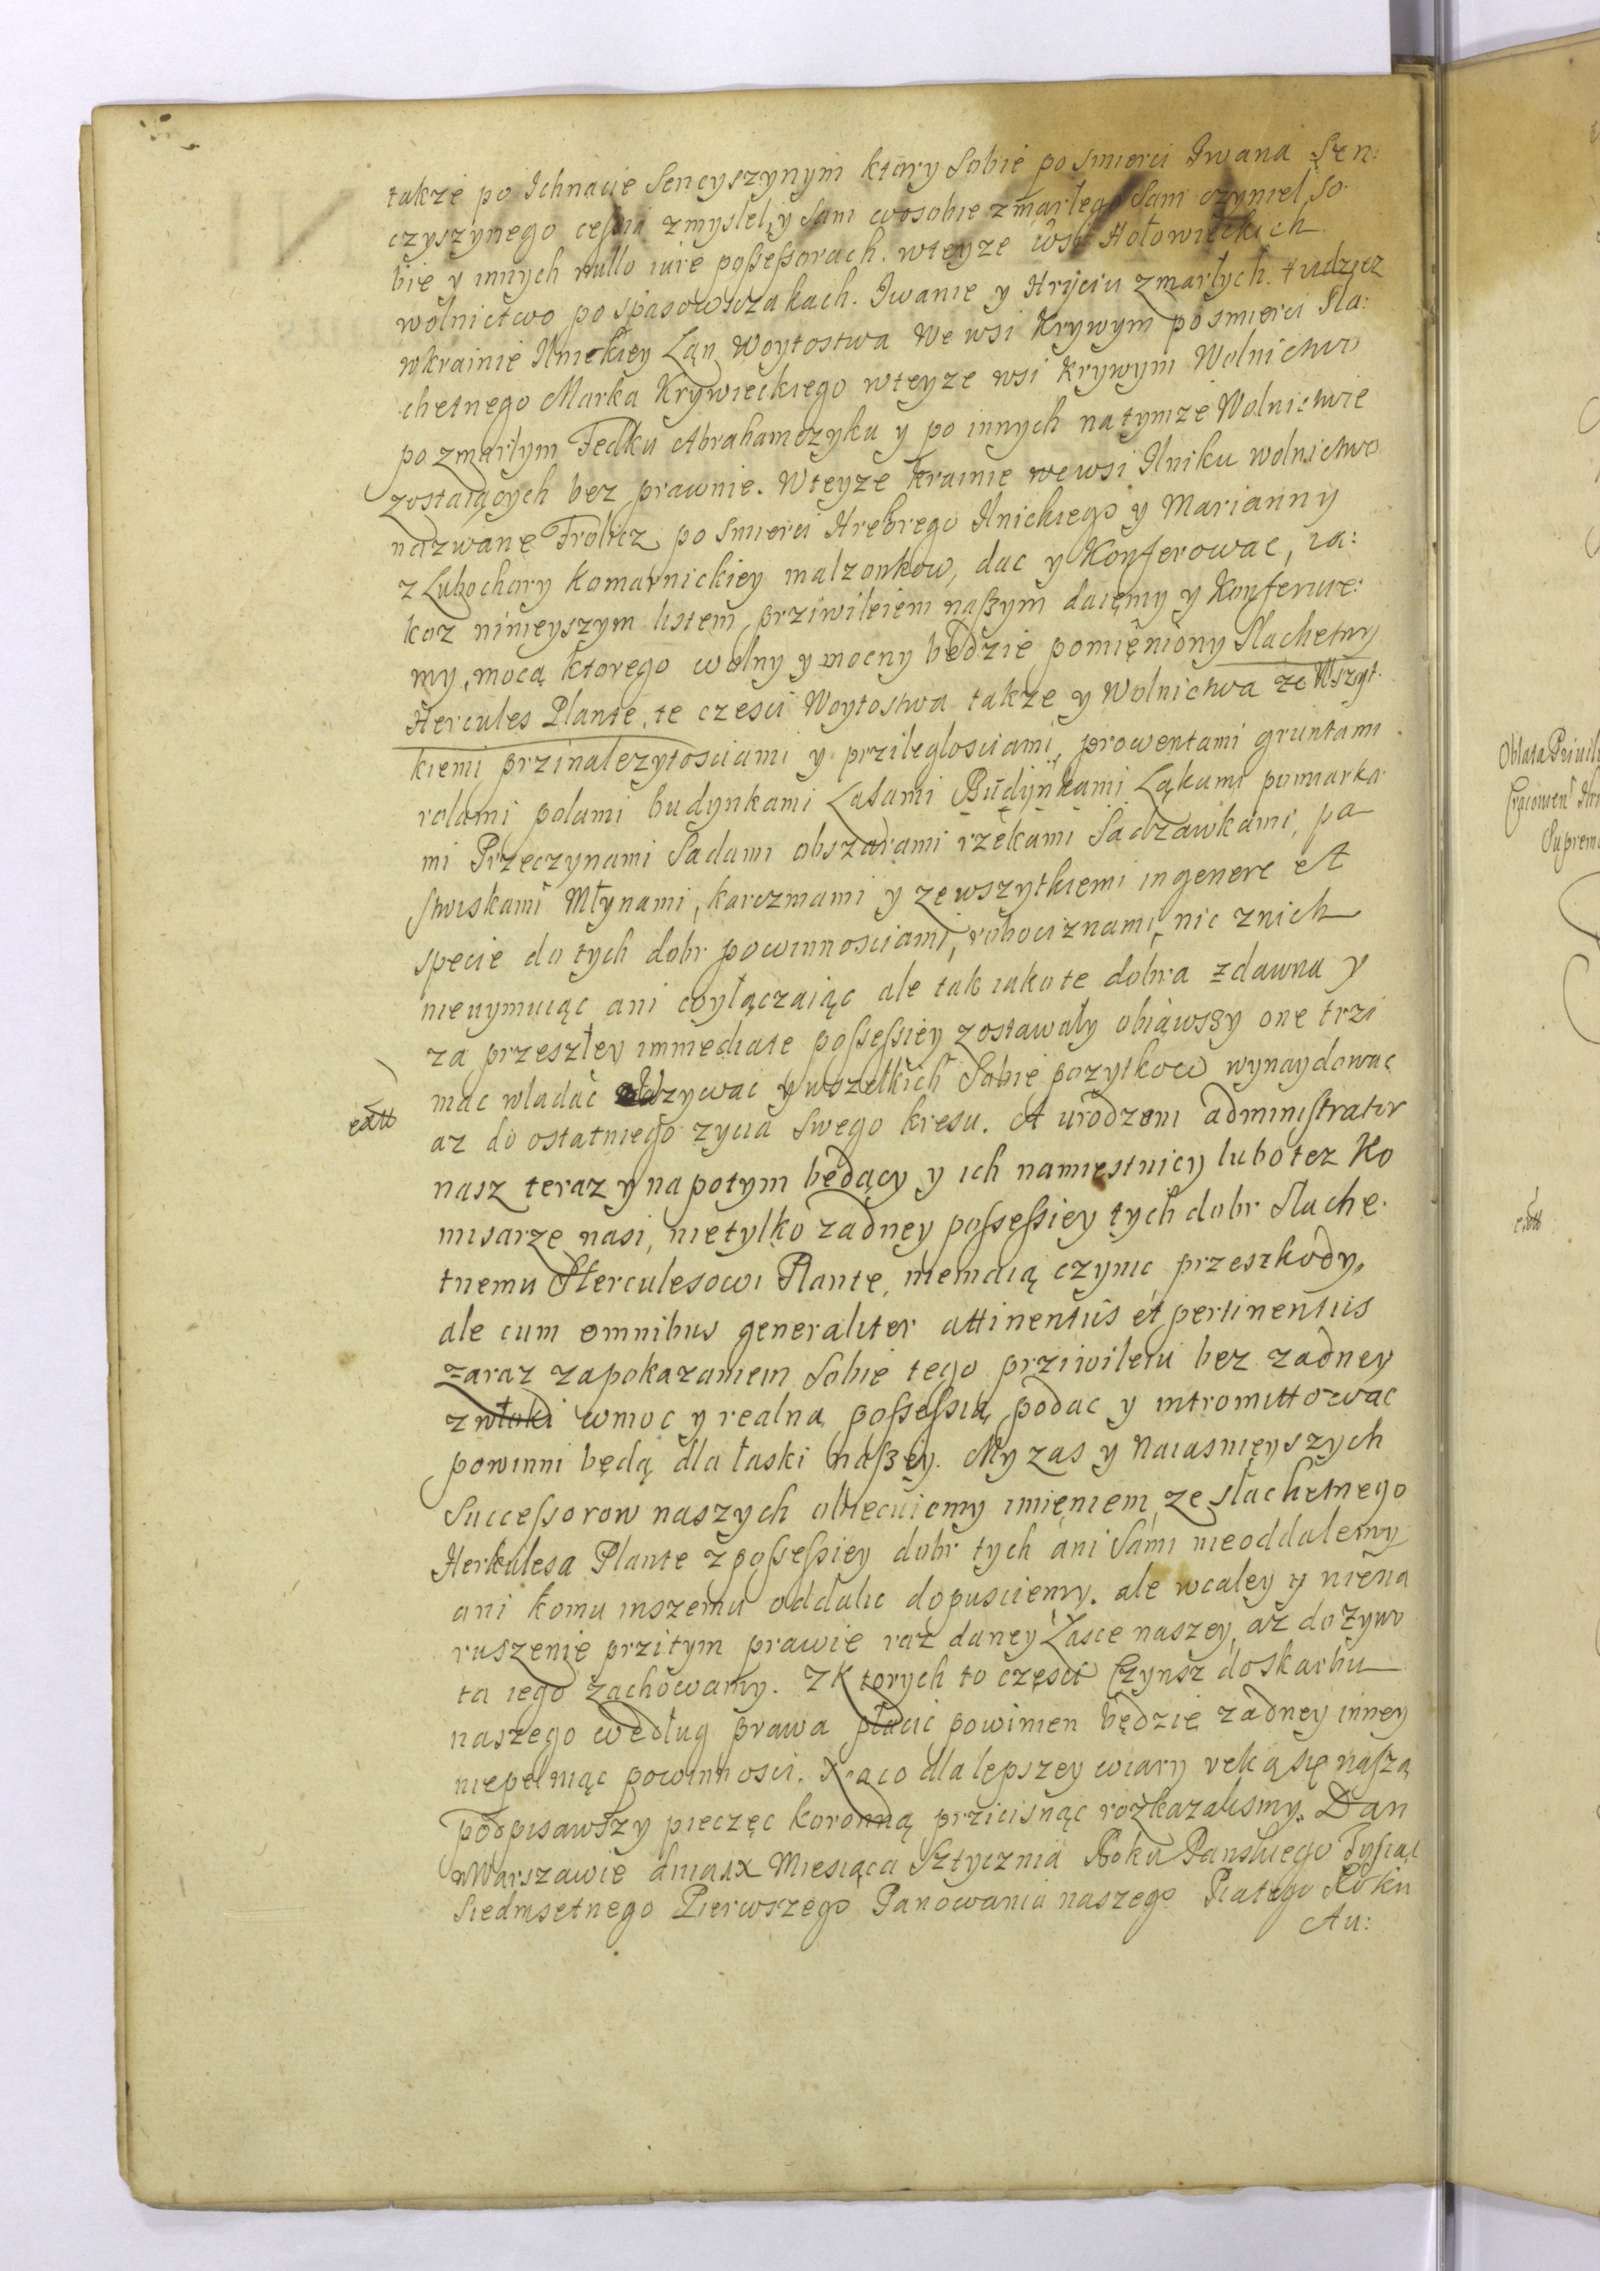 takze po Ichnacie Sencyszynym ktory Sobie po smierci Iwana Sen:
czyszynego cessia zmyslel, y Sam wosobie zmarłego Sam czyniel So.
bie y innych nullo iure possessorach. wteyze wsi Hołowieckich
wolnictwo po Spasowszczakach. Iwanie y Hryciu zmarłych. tudziez
wkrainie Ilnickiey Łąn Woytostwa We wsi Krywym po smierci Sla:
chetnego Marka Krywieckiego wteyze wsi Krywym Wolnictwo
po zmarłym Fedku Abrahamczyku y po innych natymze Wolnictwie
zostaiących bez prawnie. Wteyze krainie wewsi Ilniku wolnictwo
nazwane Frolicz po Smierci Hrehrego Ilnickiego y Marianny
z Lubochory Komarnickiey malzonkow, dac y Konferowac, ia:
koz ninieyszym listem prziwileiem naszym daiemy y Konferuie:
my, mocą ktorego wolny y mocny będzie pomieniony Slachetny
Hercules Plante, te czesci Woytostwa takze y Wolnictwa ze Wszyt.
kiemi przinalezytosciami y przileglosciami, prowentami gruntami
rolami polami budynkami Lasami Budynkami Łąkami pomiarka
mi Przeczynami Sadami obszarami rzekami Sadzawkami, pa
stwiskami Młynami, karczmami y zewszytkiemi in genere et
specie do tych dobr powinnosciami, robociznami, nic znich
nieuymuiąc ani wyłączaiąc ale tak iako te dobra zdawna y
za przeszłey immediate possessiey zostawały obiąwszy one trzi
mac władac uzywac y wszelkich Sobie pozytkow wynaydowac
az do ostatniego zycia Swego kresu. A urodzeni administrator
nasz teraz y napotym będący y ich namiestnicy lubo tez Ko
misarze nasi, nietylko zadney possessiey tych dobr Slache.
tnemu Herculesowi Plante, niemaią czynic przeszkody,
ale cum omnibus generaliter attinentiis et pertinentiis
zaraz zapokazaniem Sobie tego prziwileiu bez zadney
zwłoki wmoc y realną possessią podac y intromittowac
powinni będą dla łaski naszey. My zas y Naiasnieyszych
Successorow naszych obiecuiemy imieniem ze slachetnego
Herkulesa Plante z possessiey dobr tych ani Sami nieoddalemy
ani komu inszemu oddalic dopusciemy. ale wcaley y niena
ruszenie przitym prawie raz daney Łasce naszey, az do zywo
ta iego zachowamy. Z Ktorych to częsci Czynsz do Skarbu
naszego według prawa płacic powinien będzie zadney inney
niepełniąc powinnosci. Naco dla lepszey wiary ręką się naszą
podpisawszy pieczęc koronną przicisnąc rozkazalismy. Dan
wWarszawie dnia X Miesiąca Sztycznia Roku Panskiego Tysiąc
Siedmsetnego Pierwszego Panowania naszego Piatego Roku
Au:
Oblata Privil
Suprem